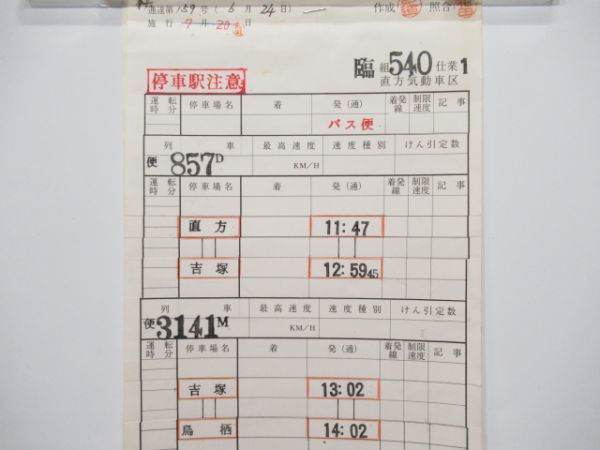 達第159号(6月24日) 作成 照合
施行 7月20日
臨 組540仕業1
直方気動車区
停車駅注意
運転時分 停車場名 着 発(通) 着発線 制限速度 記事
バス便
列車 最高速度 速度種別 けん引定数
便 857D KM/H
運転時分 停車場名 着 発(通) 着発線 制限速度 記事
直方 11:47
吉塚 12:59 45
列車 最高速度 速度種別 けん引定数
便 3141M KM/H
運転時分 停車場名 着 発(通) 着発線 制限速度 記事
吉塚 13:02
鳥栖 14:02